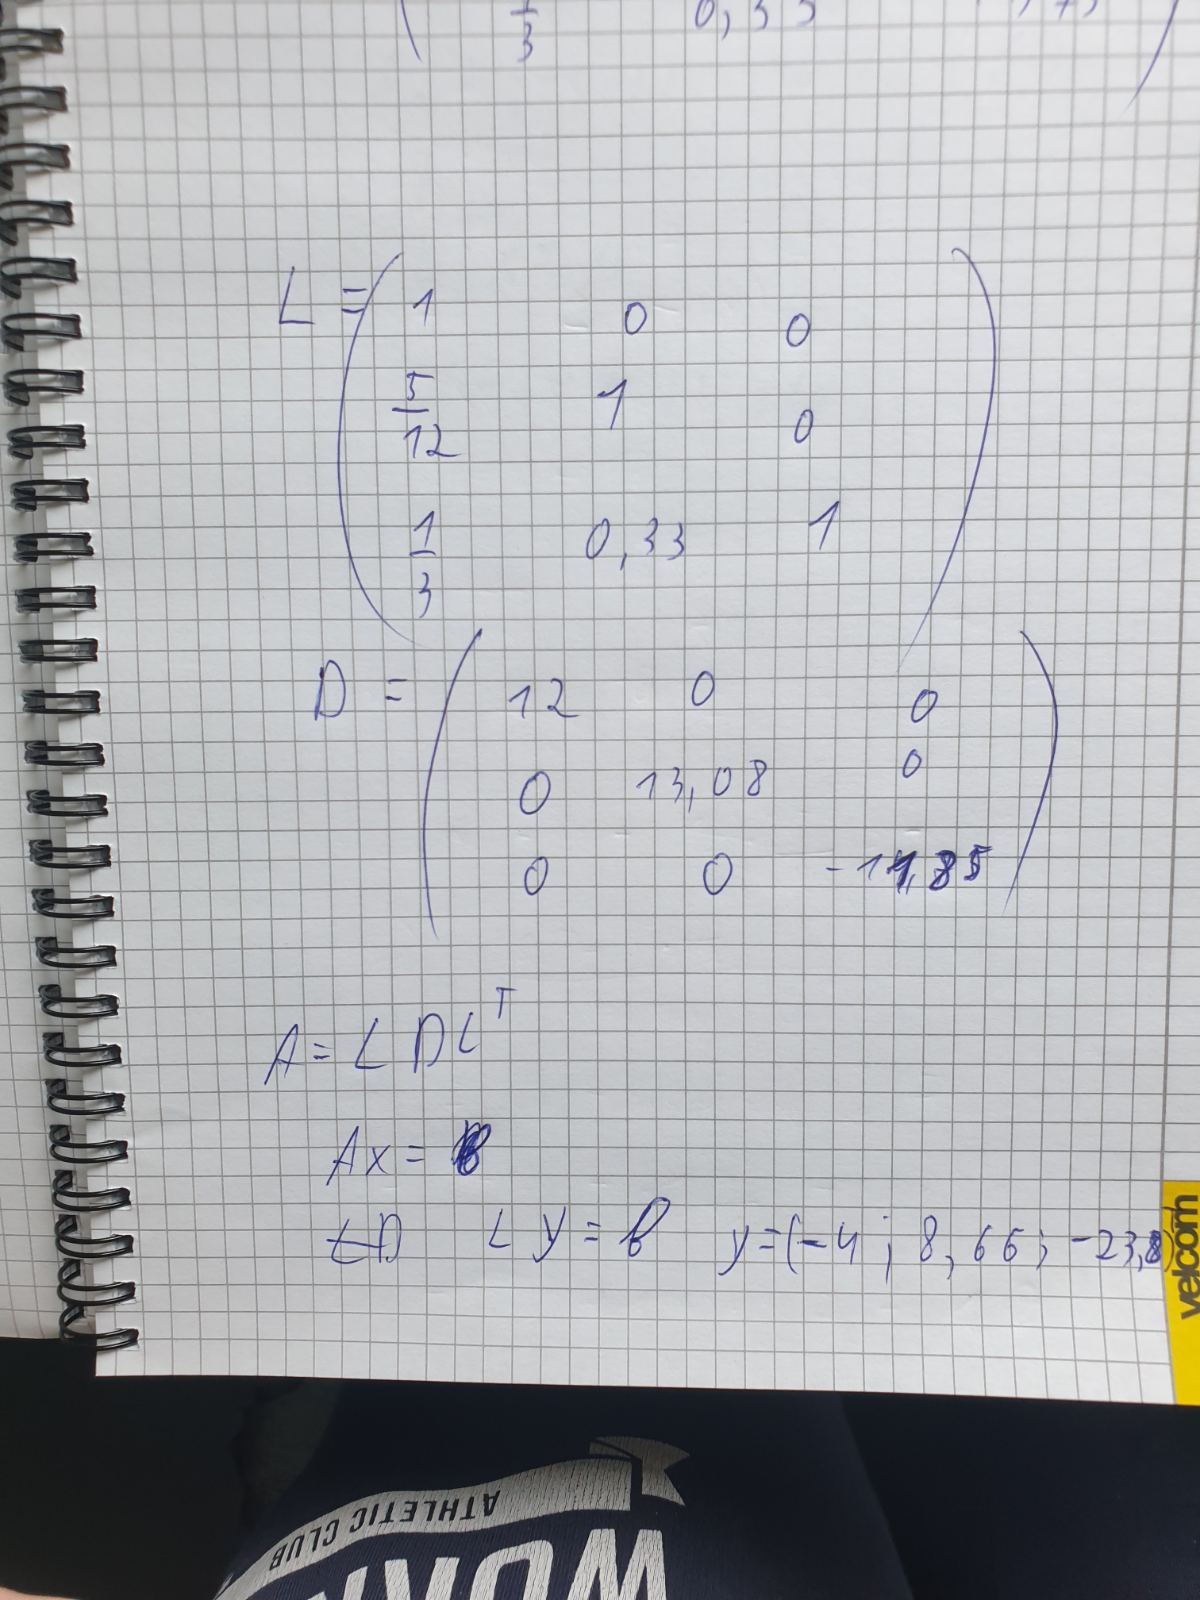 1/3 0,33
L = ( 1 0 0
5/12 1 0
1/3 0,33 1 )
D = ( 12 0 0
0 13,08 0
0 0 -11,85 )
A = L D L^T
Ax = b
LD L y = b y = (-4; 8,66; -23,8)
velcom
ATHLETIC CLUB
WORK